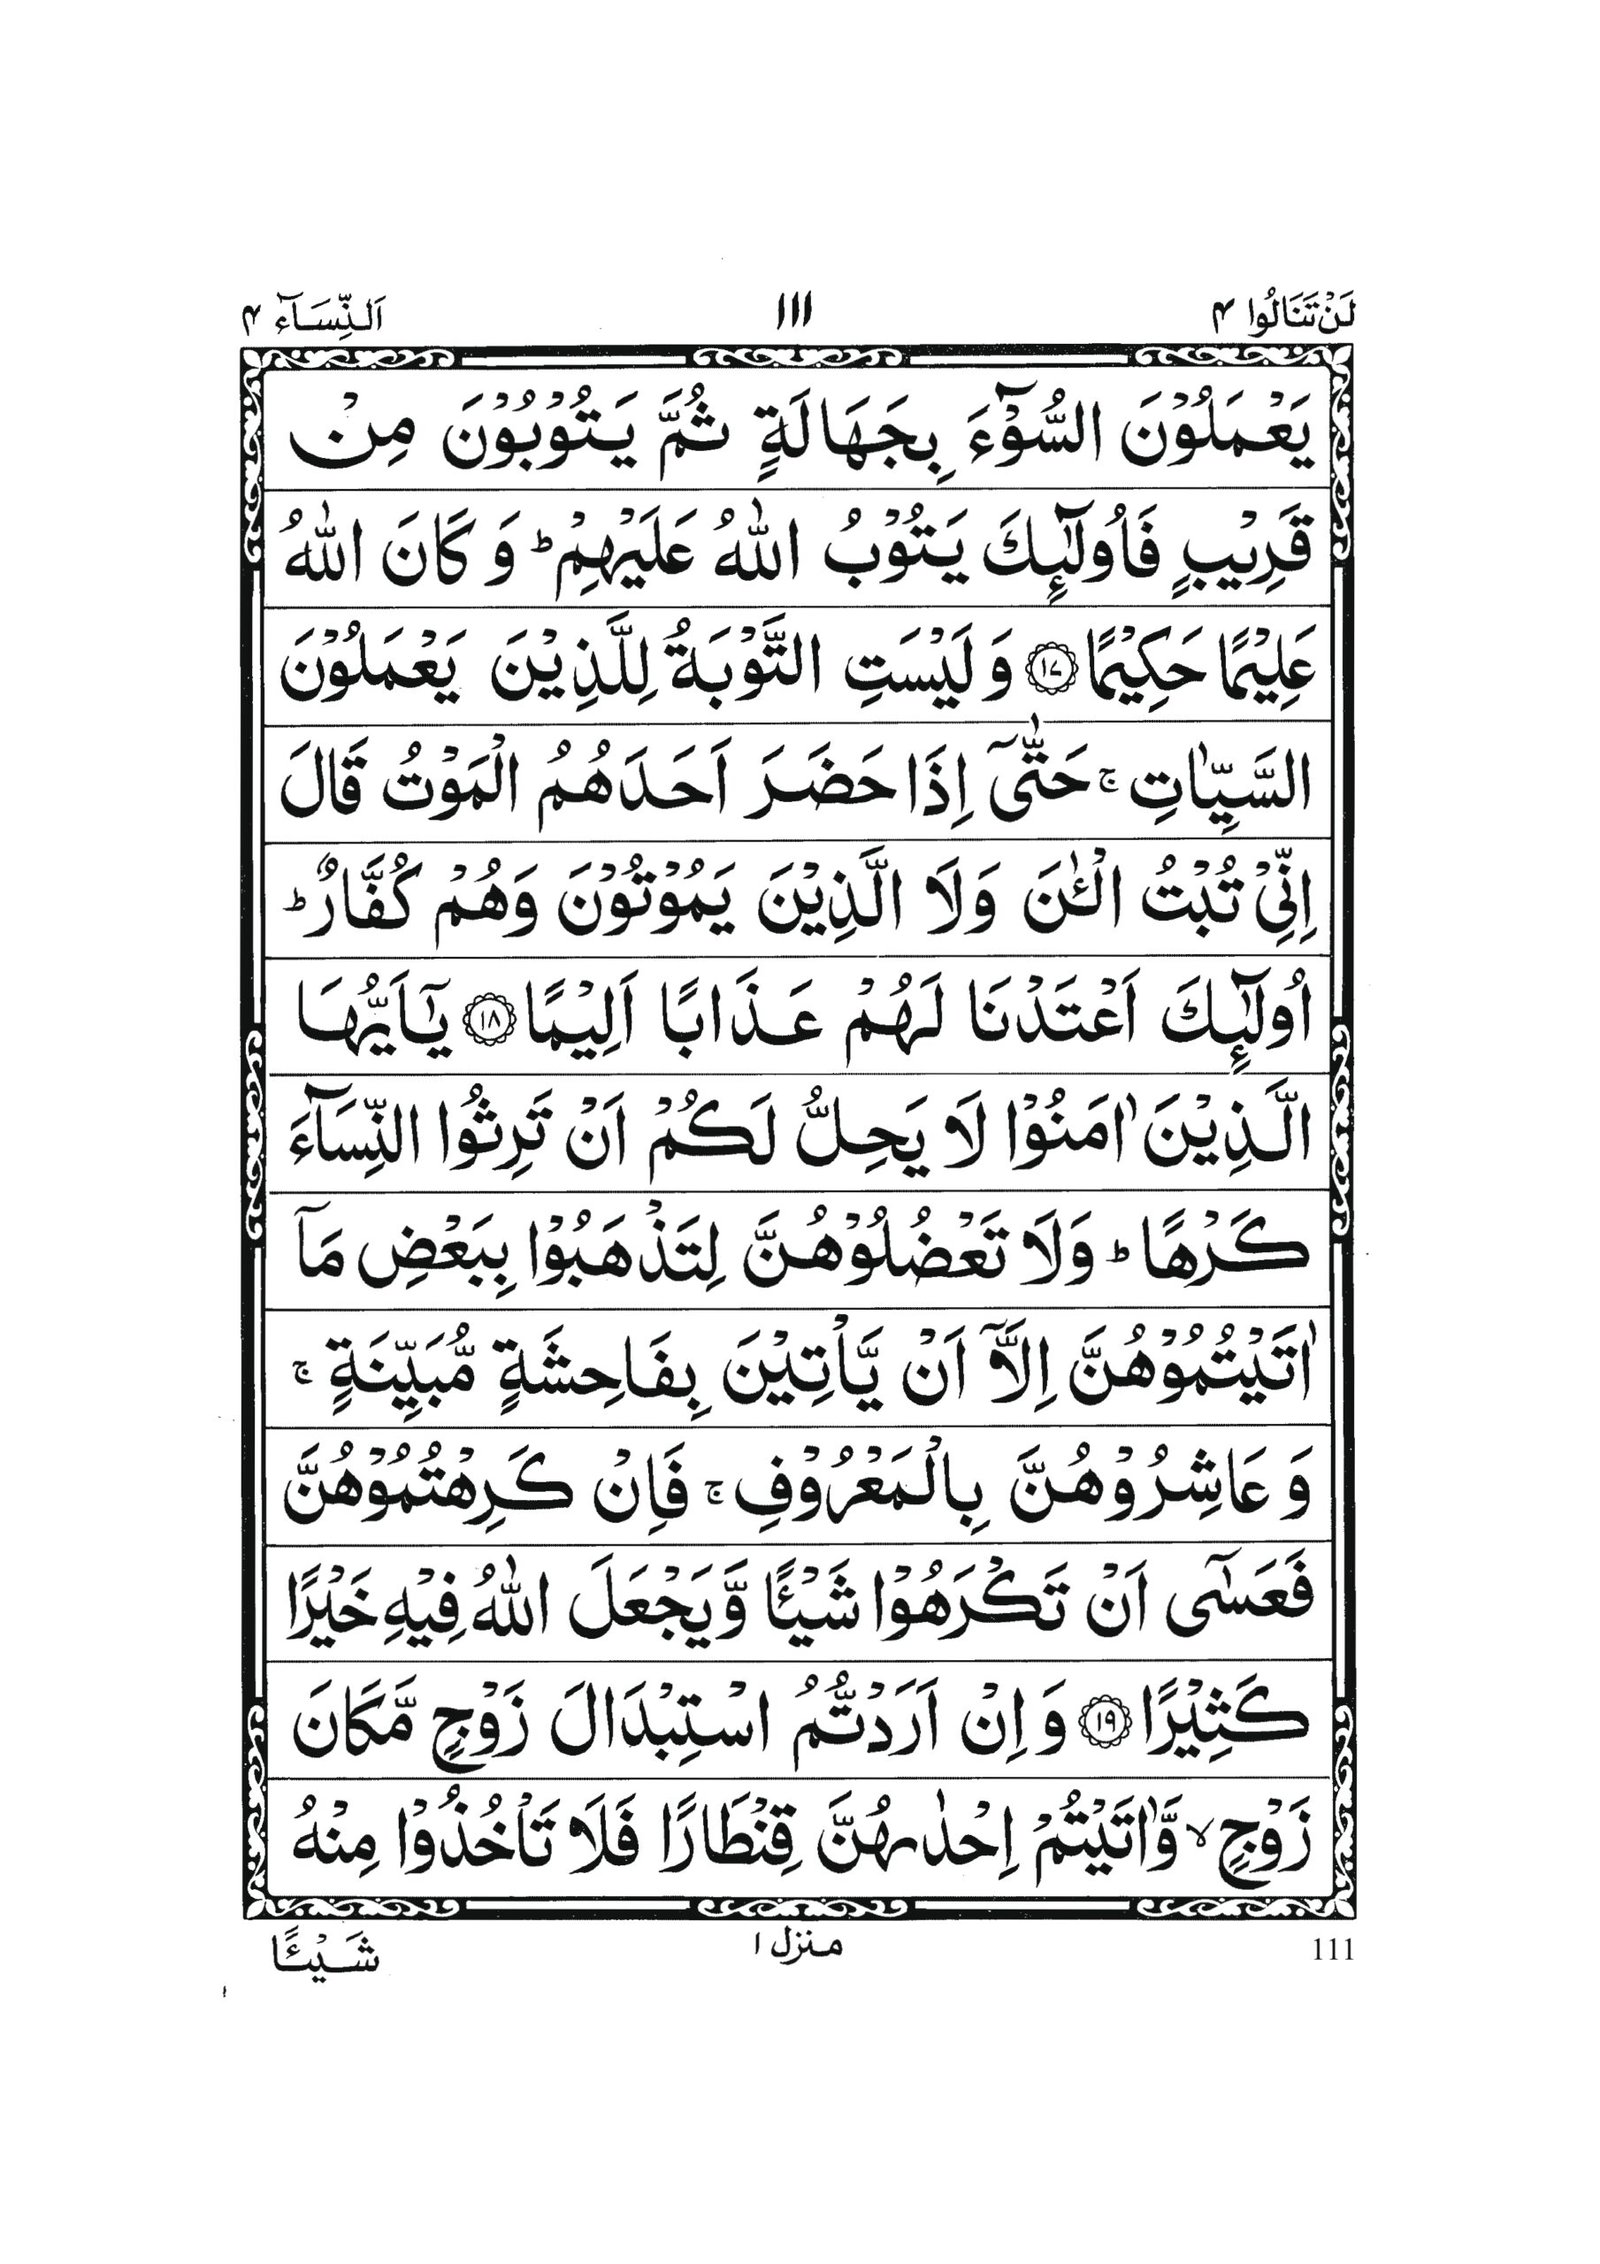 لَنْ تَنَالُوا ۴ ۱۱۱ اَلنِّسَآء ۴
يَعْمَلُوْنَ السُّوْٓءَ بِجَهَالَةٍ ثُمَّ يَتُوْبُوْنَ مِنْ
قَرِيْبٍ فَاُولٰٓئِكَ يَتُوْبُ اللّٰهُ عَلَيْهِمْ ؕ وَ كَانَ اللّٰهُ
عَلِيْمًا حَكِيْمًا ۝۱۷ وَ لَيْسَتِ التَّوْبَةُ لِلَّذِيْنَ يَعْمَلُوْنَ
السَّيِّاٰتِ ۚ حَتّٰٓى اِذَا حَضَرَ اَحَدَهُمُ الْمَوْتُ قَالَ
اِنِّىْ تُبْتُ الْـٰٔنَ وَلَا الَّذِيْنَ يَمُوْتُوْنَ وَهُمْ كُفَّارٌ ؕ
اُولٰٓئِكَ اَعْتَدْنَا لَهُمْ عَذَابًا اَلِيْمًا ۝۱۸ يٰٓاَيُّهَا
الَّذِيْنَ اٰمَنُوْا لَا يَحِلُّ لَكُمْ اَنْ تَرِثُوا النِّسَآءَ
كَرْهًا ؕ وَلَا تَعْضُلُوْهُنَّ لِتَذْهَبُوْا بِبَعْضِ مَآ
اٰتَيْتُمُوْهُنَّ اِلَّآ اَنْ يَّاْتِيْنَ بِفَاحِشَةٍ مُّبَيِّنَةٍ ۚ
وَ عَاشِرُوْهُنَّ بِالْمَعْرُوْفِ ۚ فَاِنْ كَرِهْتُمُوْهُنَّ
فَعَسٰٓى اَنْ تَكْرَهُوْا شَيْـًٔا وَّ يَجْعَلَ اللّٰهُ فِيْهِ خَيْرًا
كَثِيْرًا ۝۱۹ وَ اِنْ اَرَدْتُّمُ اسْتِبْدَالَ زَوْجٍ مَّكَانَ
زَوْجٍ ۙ وَّ اٰتَيْتُمْ اِحْدٰىهُنَّ قِنْطَارًا فَلَا تَاْخُذُوْا مِنْهُ
111 منزل ۱ شَيْـًٔا